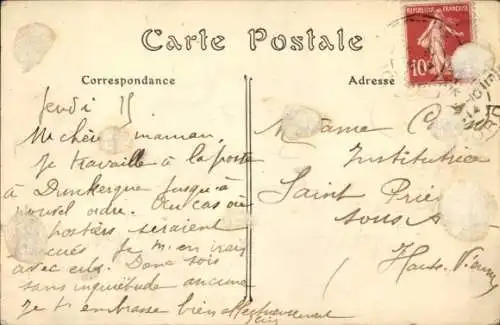 Carte Postale
Correspondance
Adresse
REPUBLIQUE FRANÇAISE
10
Jeudi 15
Ma chère maman,
Je travaille à la poste
à Dunkerque jusqu'à
nouvel ordre. Au cas où
postiers seraient
évacués je m'en irais
avec eux. Donc sois
sans inquiétude aucune
Je t'embrasse bien affectueusement
Madame
Institutrice
Saint Prie
sous
Haute-Vienne